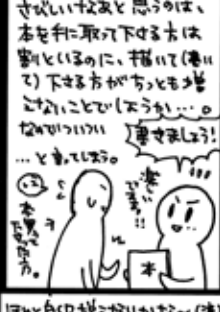 さびしいなあと思うのは、
本を手に取って下さる方は
割といるのに、描いて(書い
て)下さる方がちっとも増
えないことでしょうか…。
なのでついつい
書きましょう!
…と言ってしまう。
楽しい
ですよ!!
本
本買って
下さった方。